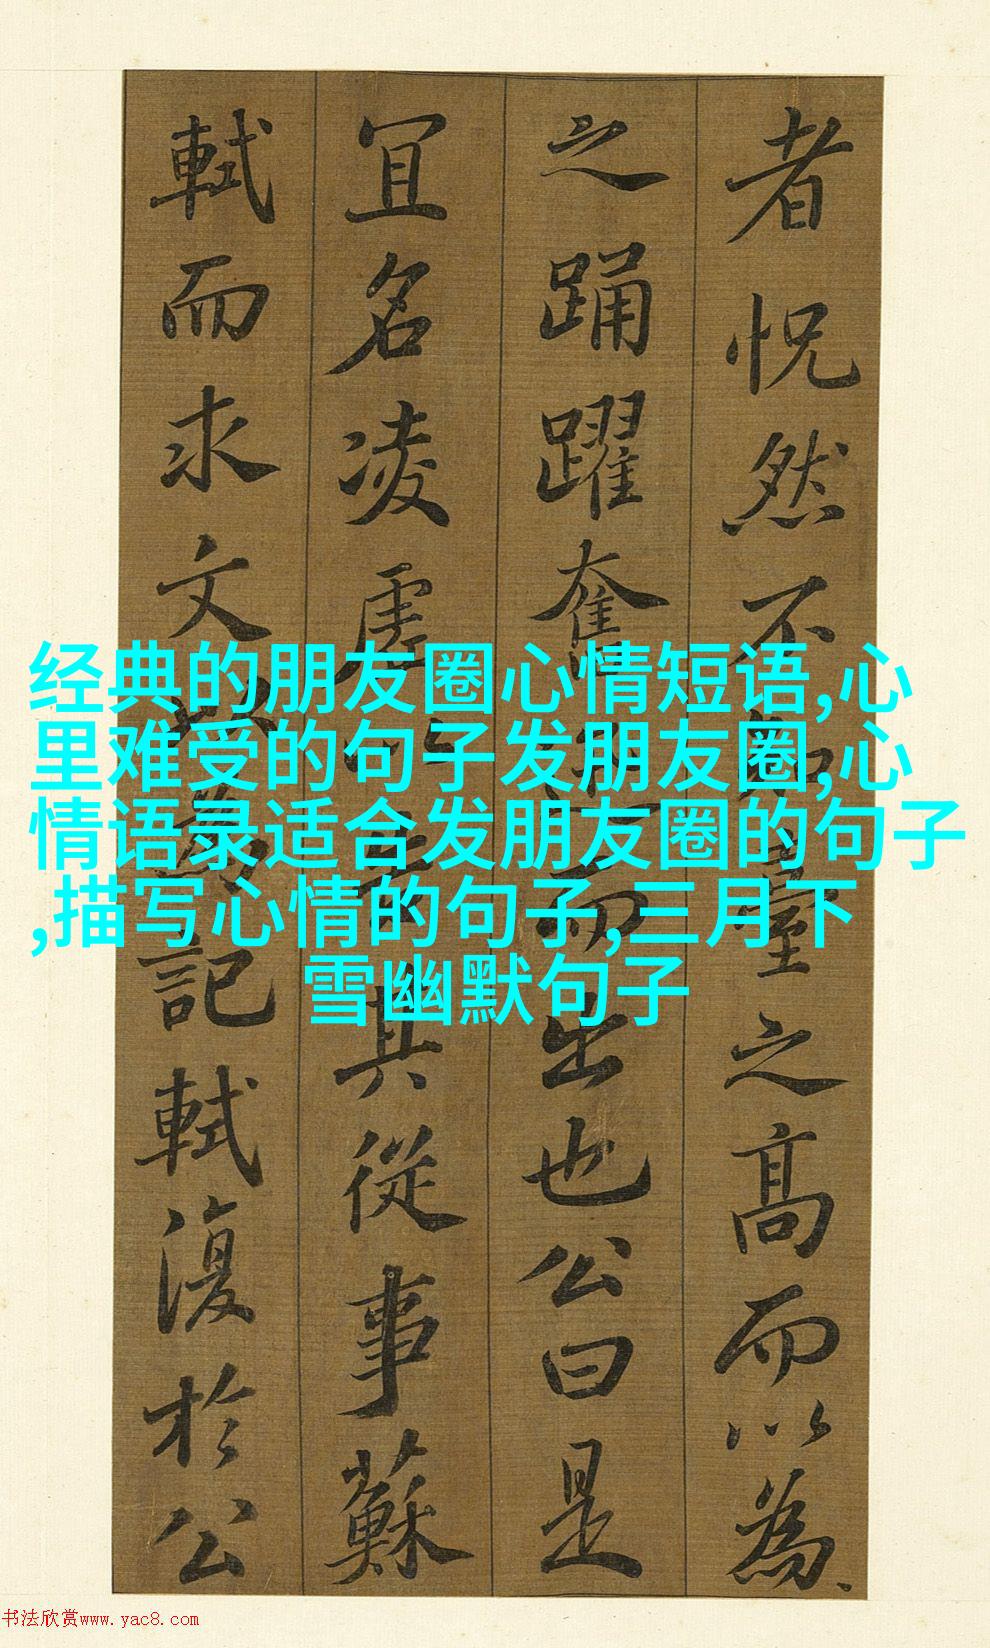 者怳然不知臺之髙而以為
之踊躍奮迅而出也公曰是
冝名凌虛以告其從事蘇
軾而求文以為記軾復於公
经典的朋友圈心情短语,心
里难受的句子发朋友圈,心
情语录适合发朋友圈的句子
,描写心情的句子,三月下
雪幽默句子
书法欣赏www.yac8.com